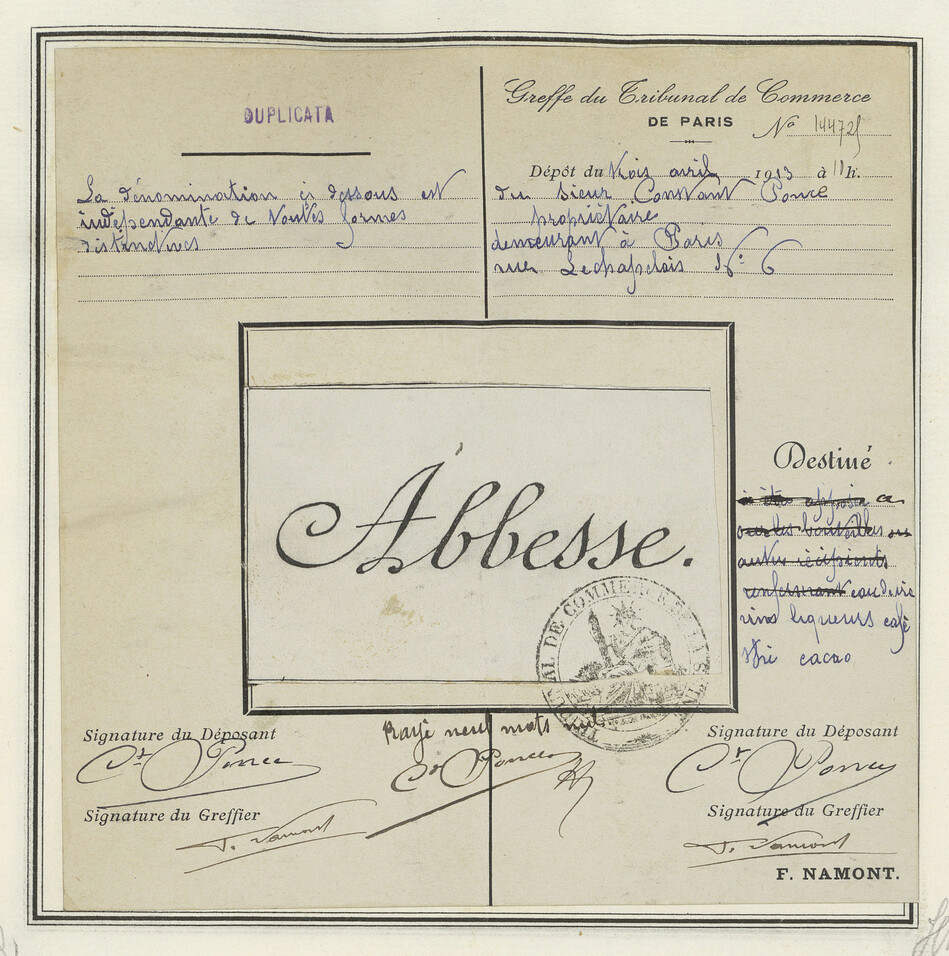 DUPLICATA
La dénomination ci dessous est
indépendante de toutes formes
distinctives
Greffe du Tribunal de Commerce
DE PARIS
No 144725
Dépôt du trois avril 1913 à 11h.
du sieur Constant Ponce
propriétaire
demeurant à Paris
rue Lechapelais No 6
Abbesse.
TRIBUNAL DE COMMERCE DE LA SEINE
Destiné
à être apposé
sur les bouteilles ou
autres récipients
renfermant eau de vie
vins liqueurs café
thé cacao
Rayé neuf mots nuls
Ct Ponce
Signature du Déposant
Ct Ponce
Signature du Greffier
F. Namont
Signature du Déposant
Ct Ponce
Signature du Greffier
F. Namont
F. NAMONT.